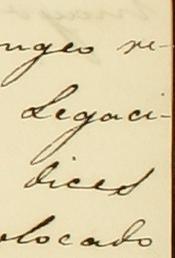 ungeo re-
Legaci-
dices
olocado